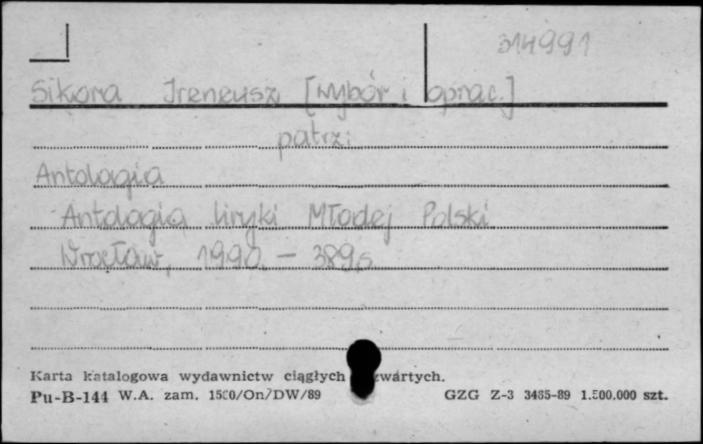 314991
Sikora Ireneusz [wybór i oprac.]
patrz:
Antologia
Antologia liryki Młodej Polski
Wrocław, 1990. - 389 s
Karta katalogowa wydawnictw ciągłych zwartych.
Pu-B-144 W.A. zam. /On/DW/89 GZG Z-3 3485-89 1.500.000 szt.